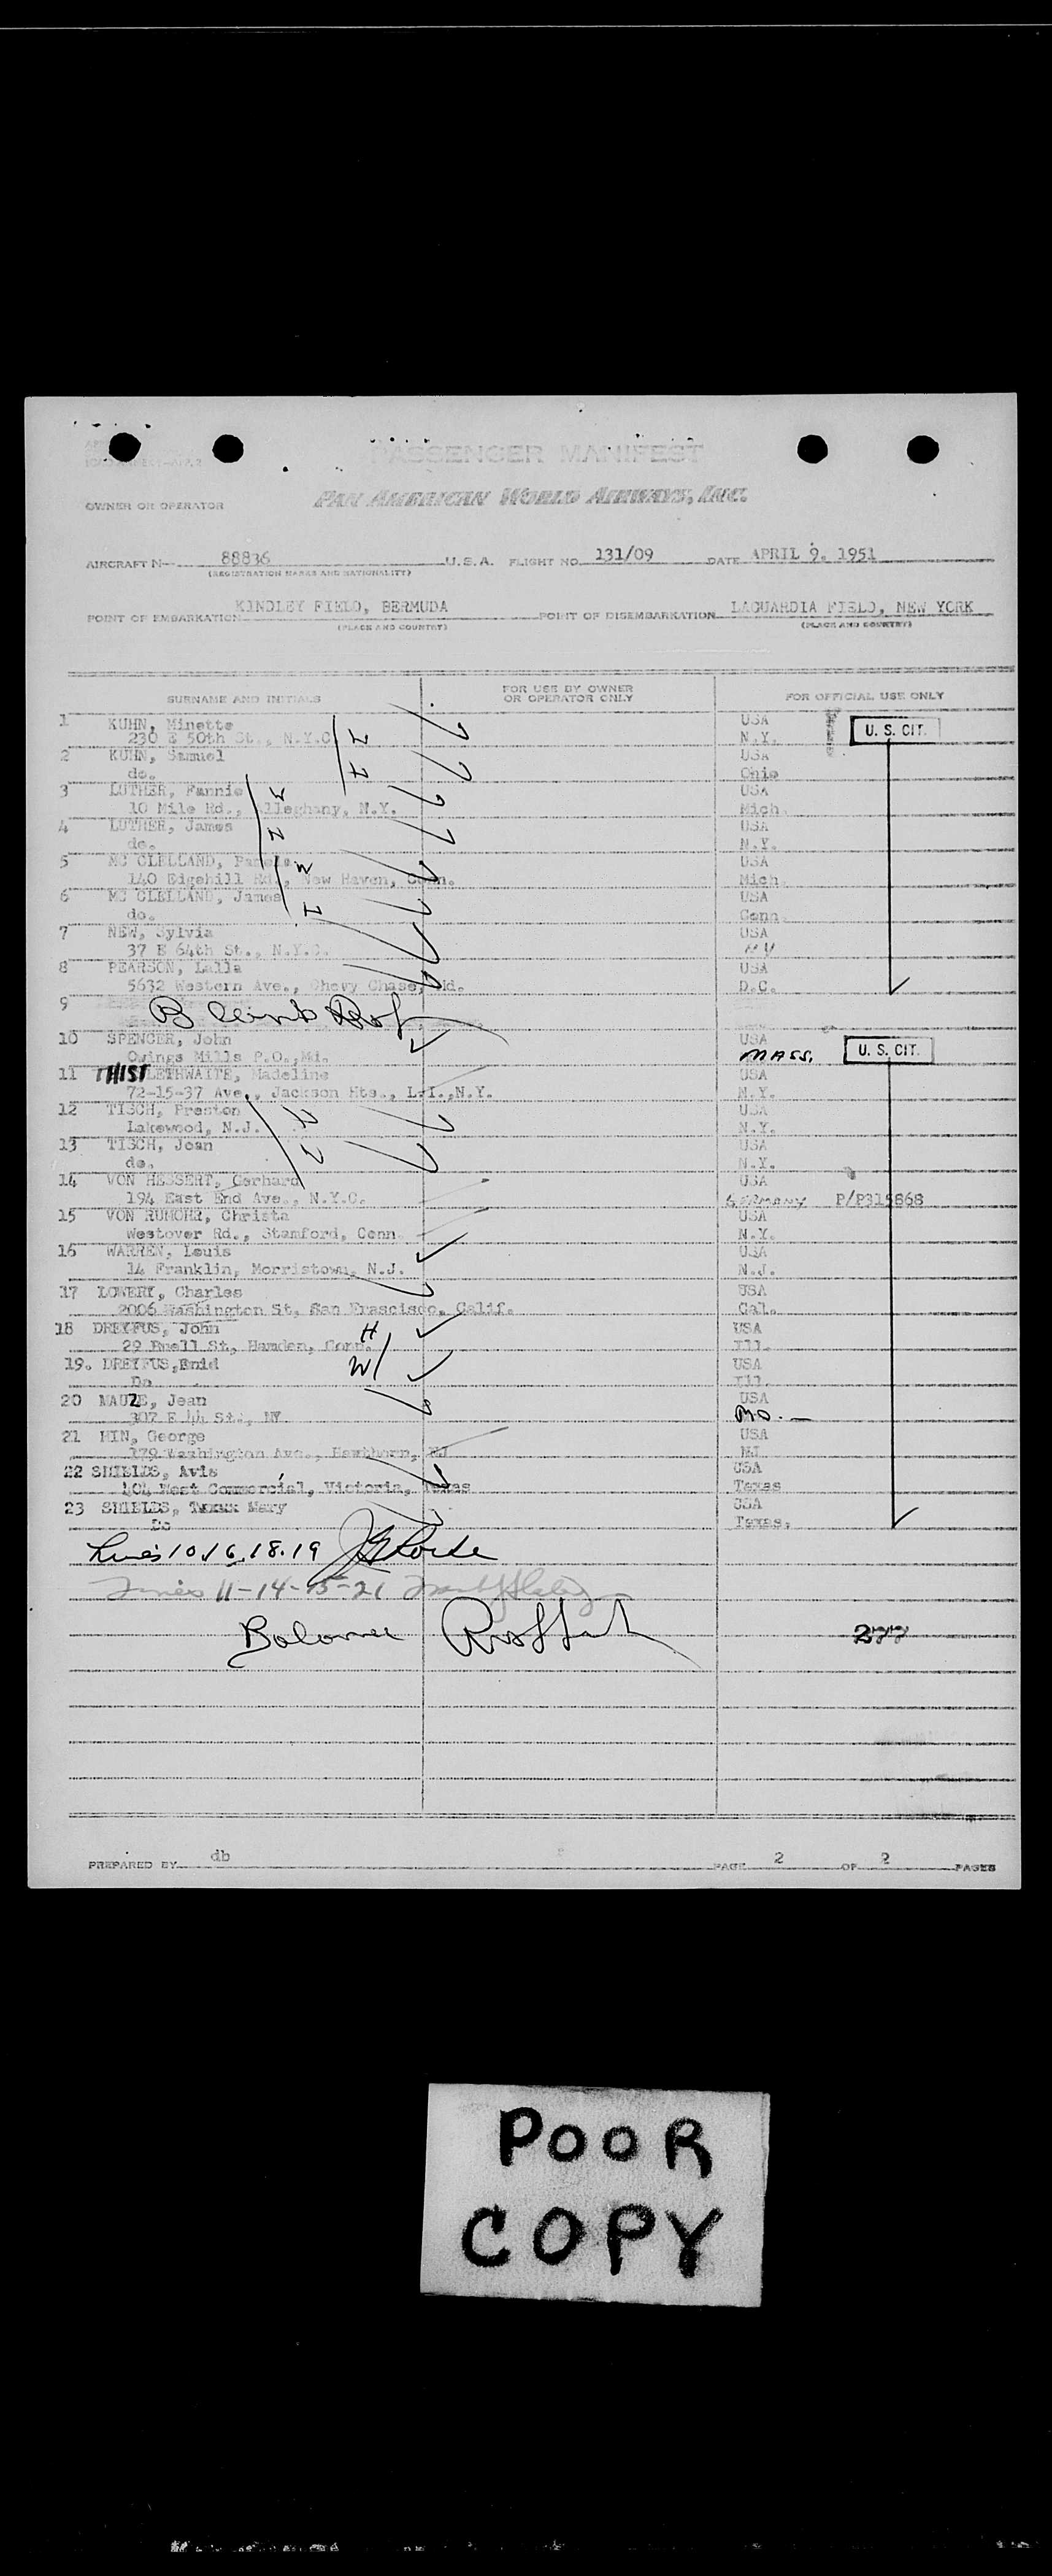 PASSENGER MANIFEST
OWNER OR OPERATOR PAN AMERICAN WORLD AIRWAYS, INC.
AIRCRAFT N- 88836 U.S.A. FLIGHT NO. 131/09 DATE APRIL 9. 1951
(REGISTRATION MARKS AND NATIONALITY)
POINT OF EMBARKATION KINDLEY FIELD, BERMUDA POINT OF DISEMBARKATION LAGUARDIA FIELD, NEW YORK
(PLACE AND COUNTRY) (PLACE AND COUNTRY)
SURNAME AND INITIALS FOR USE BY OWNER OR OPERATOR ONLY FOR OFFICIAL USE ONLY
1 KUHN, Minette USA U. S. CIT.
230 E 50th St., N.Y.C N.Y.
2 KUHN, Samuel USA
do. Ohio
3 LUTHER, Fannie USA
10 Mile Rd., Alleghany, N.Y. Mich.
4 LUTHER, James USA
do. N.Y.
5 MC CLELLAND, Pamela USA
140 Edgehill Rd., New Haven, Conn. Mich.
6 MC CLELLAND, James USA
do. Conn.
7 NEW, Sylvia USA
37 E 64th St., N.Y.C. NY
8 PEARSON, Lalla USA
5632 Western Ave., Chevy Chase, Md. D.C.
9 Blank
10 SPENCER, John USA
Owings Mills P.O., Md. MASS. U. S. CIT.
11 THISTLETHWAITE, Madeline USA
72-15-37 Ave., Jackson Hts., L.I.,N.Y. N.Y.
12 TISCH, Preston USA
Lakewood, N.J. N.Y.
13 TISCH, Joan USA
do. N.Y.
14 VON HESSERT, Gerhard USA
194 East End Ave., N.Y.C. GERMANY P/P315868
15 VON RUMOHR, Christa USA
Westover Rd., Stamford, Conn. N.Y.
16 WARREN, Louis USA
14 Franklin, Morristown, N.J. N.J.
17 LOWERY, Charles USA
2006 Washington St, San Frascisco, Calif. Cal.
18 DREYFUS, John H USA
29 Buell St, Hamden, Conn. Ill.
19. DREYFUS,Enid W USA
Do Ill.
20 MAUZE, Jean USA
307 E 44 St., NY MO.
21 MIN, George USA
179 Washington Ave., Hawthorn, NJ NJ
22 SHIELDS, Avis USA
404 West Commercial, Victoria, Texas Texas
23 SHIELDS, Mary USA
Do Texas.
Lines 10.16.18.19
Lines 11-14-15-21
Balance
277
PREPARED BY db PAGE 2 OF 2 PAGES
POOR
COPY